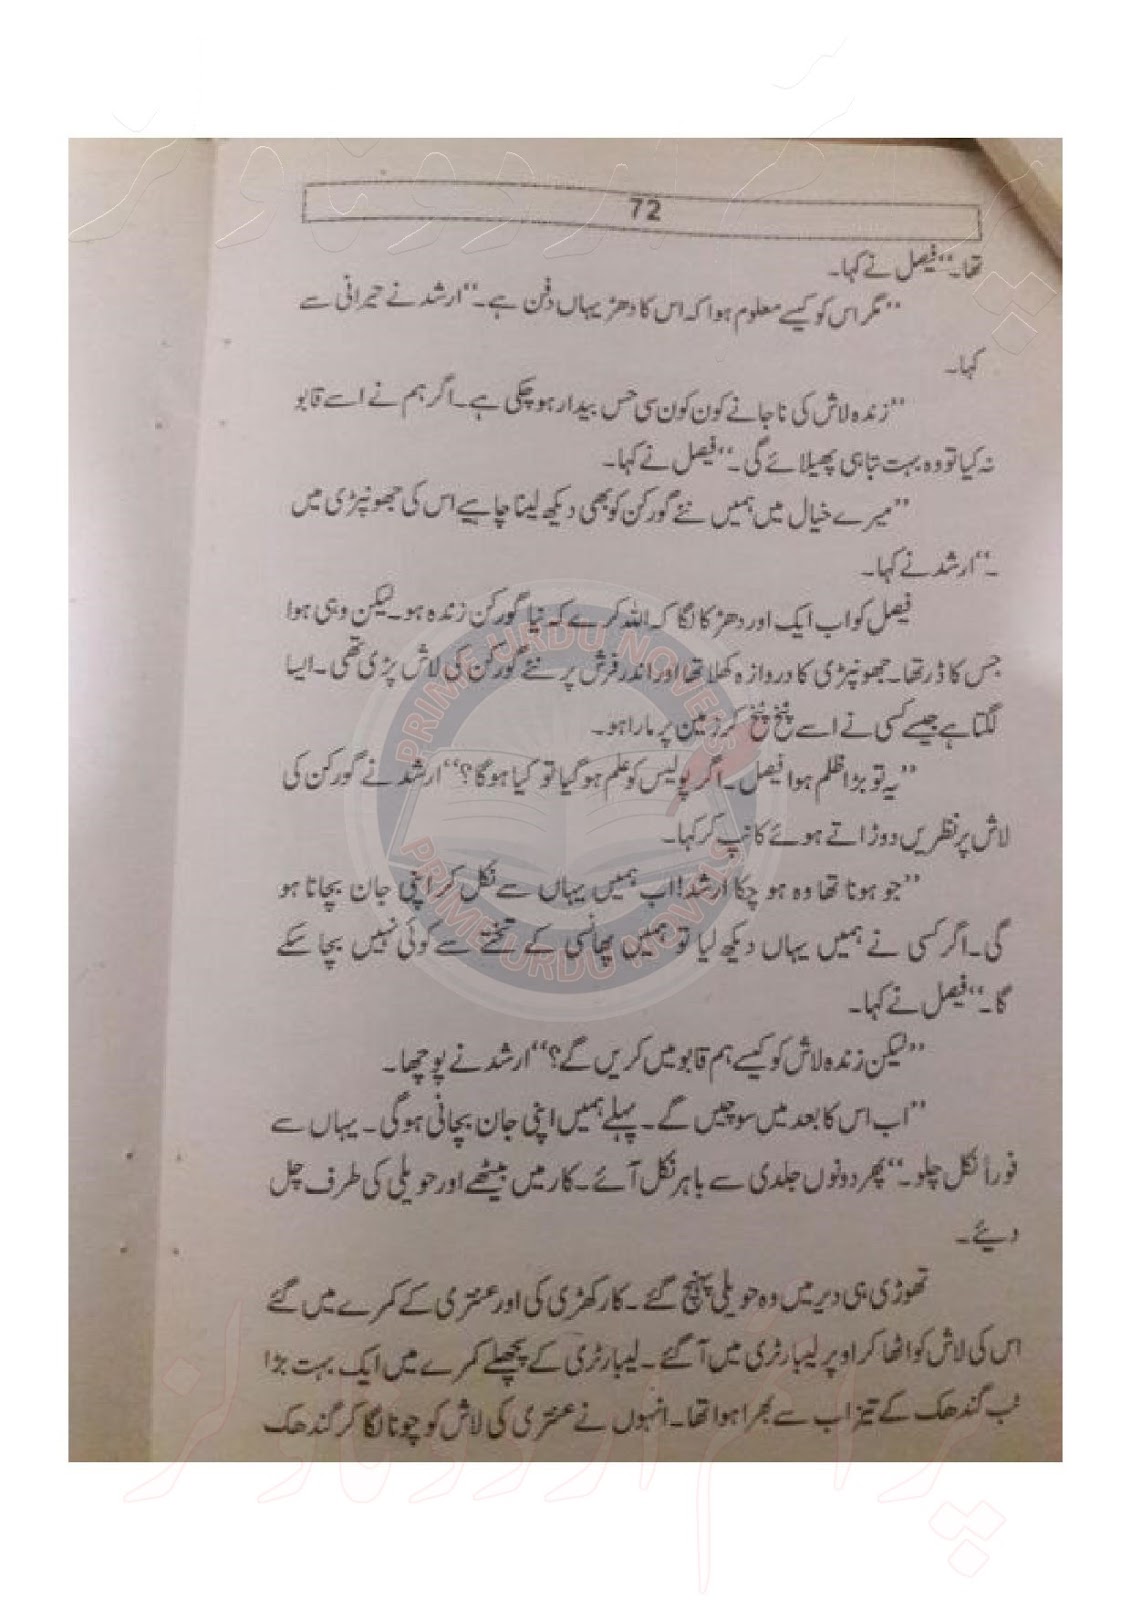 72
تھا۔“ فیصل نے کہا۔
”مگر اس کو کیسے معلوم ہوا کہ اس کا دھڑ یہاں دفن ہے۔“ ارشد نے حیرانی سے
کہا۔
”زندہ لاش کی نا جانے کون کون سی حس بیدار ہو چکی ہے۔ اگر ہم نے اسے قابو
نہ کیا تو وہ بہت تباہی پھیلائے گی۔“ فیصل نے کہا۔
”میرے خیال میں ہمیں نئے گورکن کو بھی دیکھ لینا چاہیے اس کی جھونپڑی میں
۔“ ارشد نے کہا۔
فیصل کو اب ایک اور دھڑکا لگا کہ اللہ کرے کہ نیا گورکن زندہ ہو۔ لیکن وہی ہوا
جس کا ڈر تھا۔ جھونپڑی کا دروازہ کھلا تھا اور اندر فرش پر نئے گورکن کی لاش پڑی تھی۔ ایسا
لگتا ہے جیسے کسی نے اسے پٹخ پٹخ کر زمین پر مارا ہو۔
”یہ تو بڑا ظلم ہوا فیصل۔ اگر پولیس کو علم ہو گیا تو کیا ہوگا؟“ ارشد نے گورکن کی
لاش پر نظریں دوڑاتے ہوئے کانپ کر کہا۔
”جو ہونا تھا وہ ہو چکا ارشد! اب ہمیں یہاں سے نکل کر اپنی جان بچانا ہو
گی۔ اگر کسی نے ہمیں یہاں دیکھ لیا تو ہمیں پھانسی کے تختے سے کوئی نہیں بچا سکے
گا۔“ فیصل نے کہا۔
”لیکن زندہ لاش کو کیسے ہم قابو میں کریں گے؟“ ارشد نے پوچھا۔
”اب اس کا بعد میں سوچیں گے۔ پہلے ہمیں اپنی جان بچانی ہوگی۔ یہاں سے
فوراً نکل چلو۔“ پھر دونوں جلدی سے باہر نکل آئے۔ کار میں بیٹھے اور حویلی کی طرف چل
دیئے۔
تھوڑی ہی دیر میں وہ حویلی پہنچ گئے۔ کار کھڑی کی اور عنتری کے کمرے میں گئے
اس کی لاش کو اٹھا کر اوپر لیبارٹری میں آ گئے۔ لیبارٹری کے پچھلے کمرے میں ایک بہت بڑا
ٹب گندھک کے تیزاب سے بھرا ہوا تھا۔ انہوں نے عنتری کی لاش کو چونا لگا کر گندھک
PRIME URDU NOVELS
PRIME URDU NOVELS
پرائم اردو ناولز
پرائم اردو ناولز